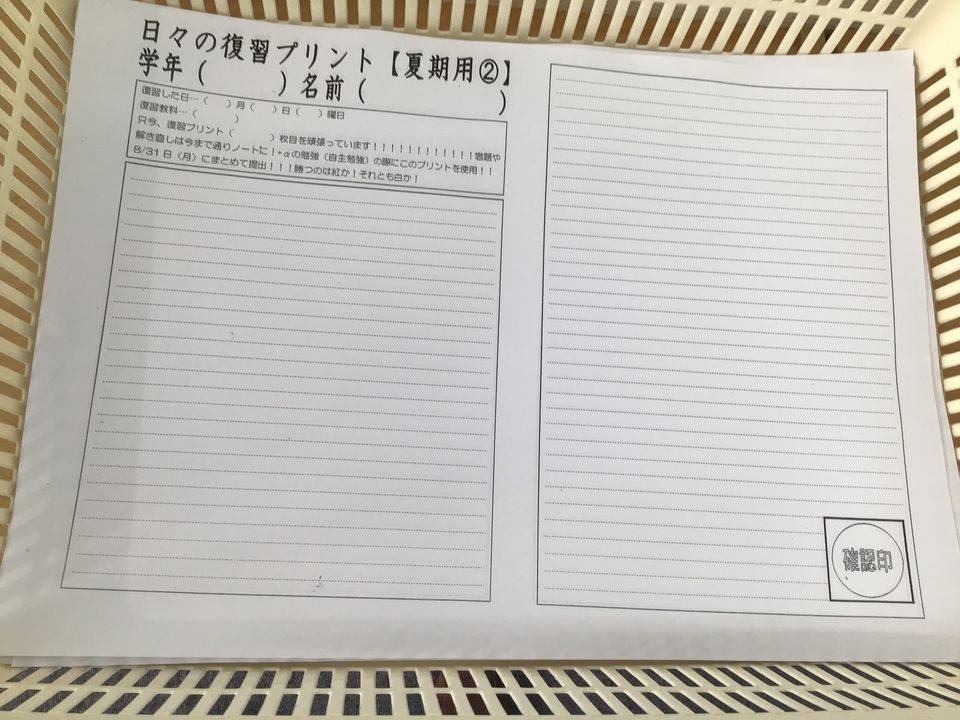 日々の復習プリント【夏期用②】
学年（　　　）名前（　　　　　　）
復習した日…（　　）月（　　）日（　　）曜日
復習教科…（　　　　）
只今、復習プリント（　　　）枚目を頑張っています！！！！！！！！！！！！宿題や
解き直しは今まで通りノートに！+αの勉強（自主勉強）の際にこのプリントを使用！！
8/31日（月）にまとめて提出！！！勝つのは紅か！それとも白か！
確認印